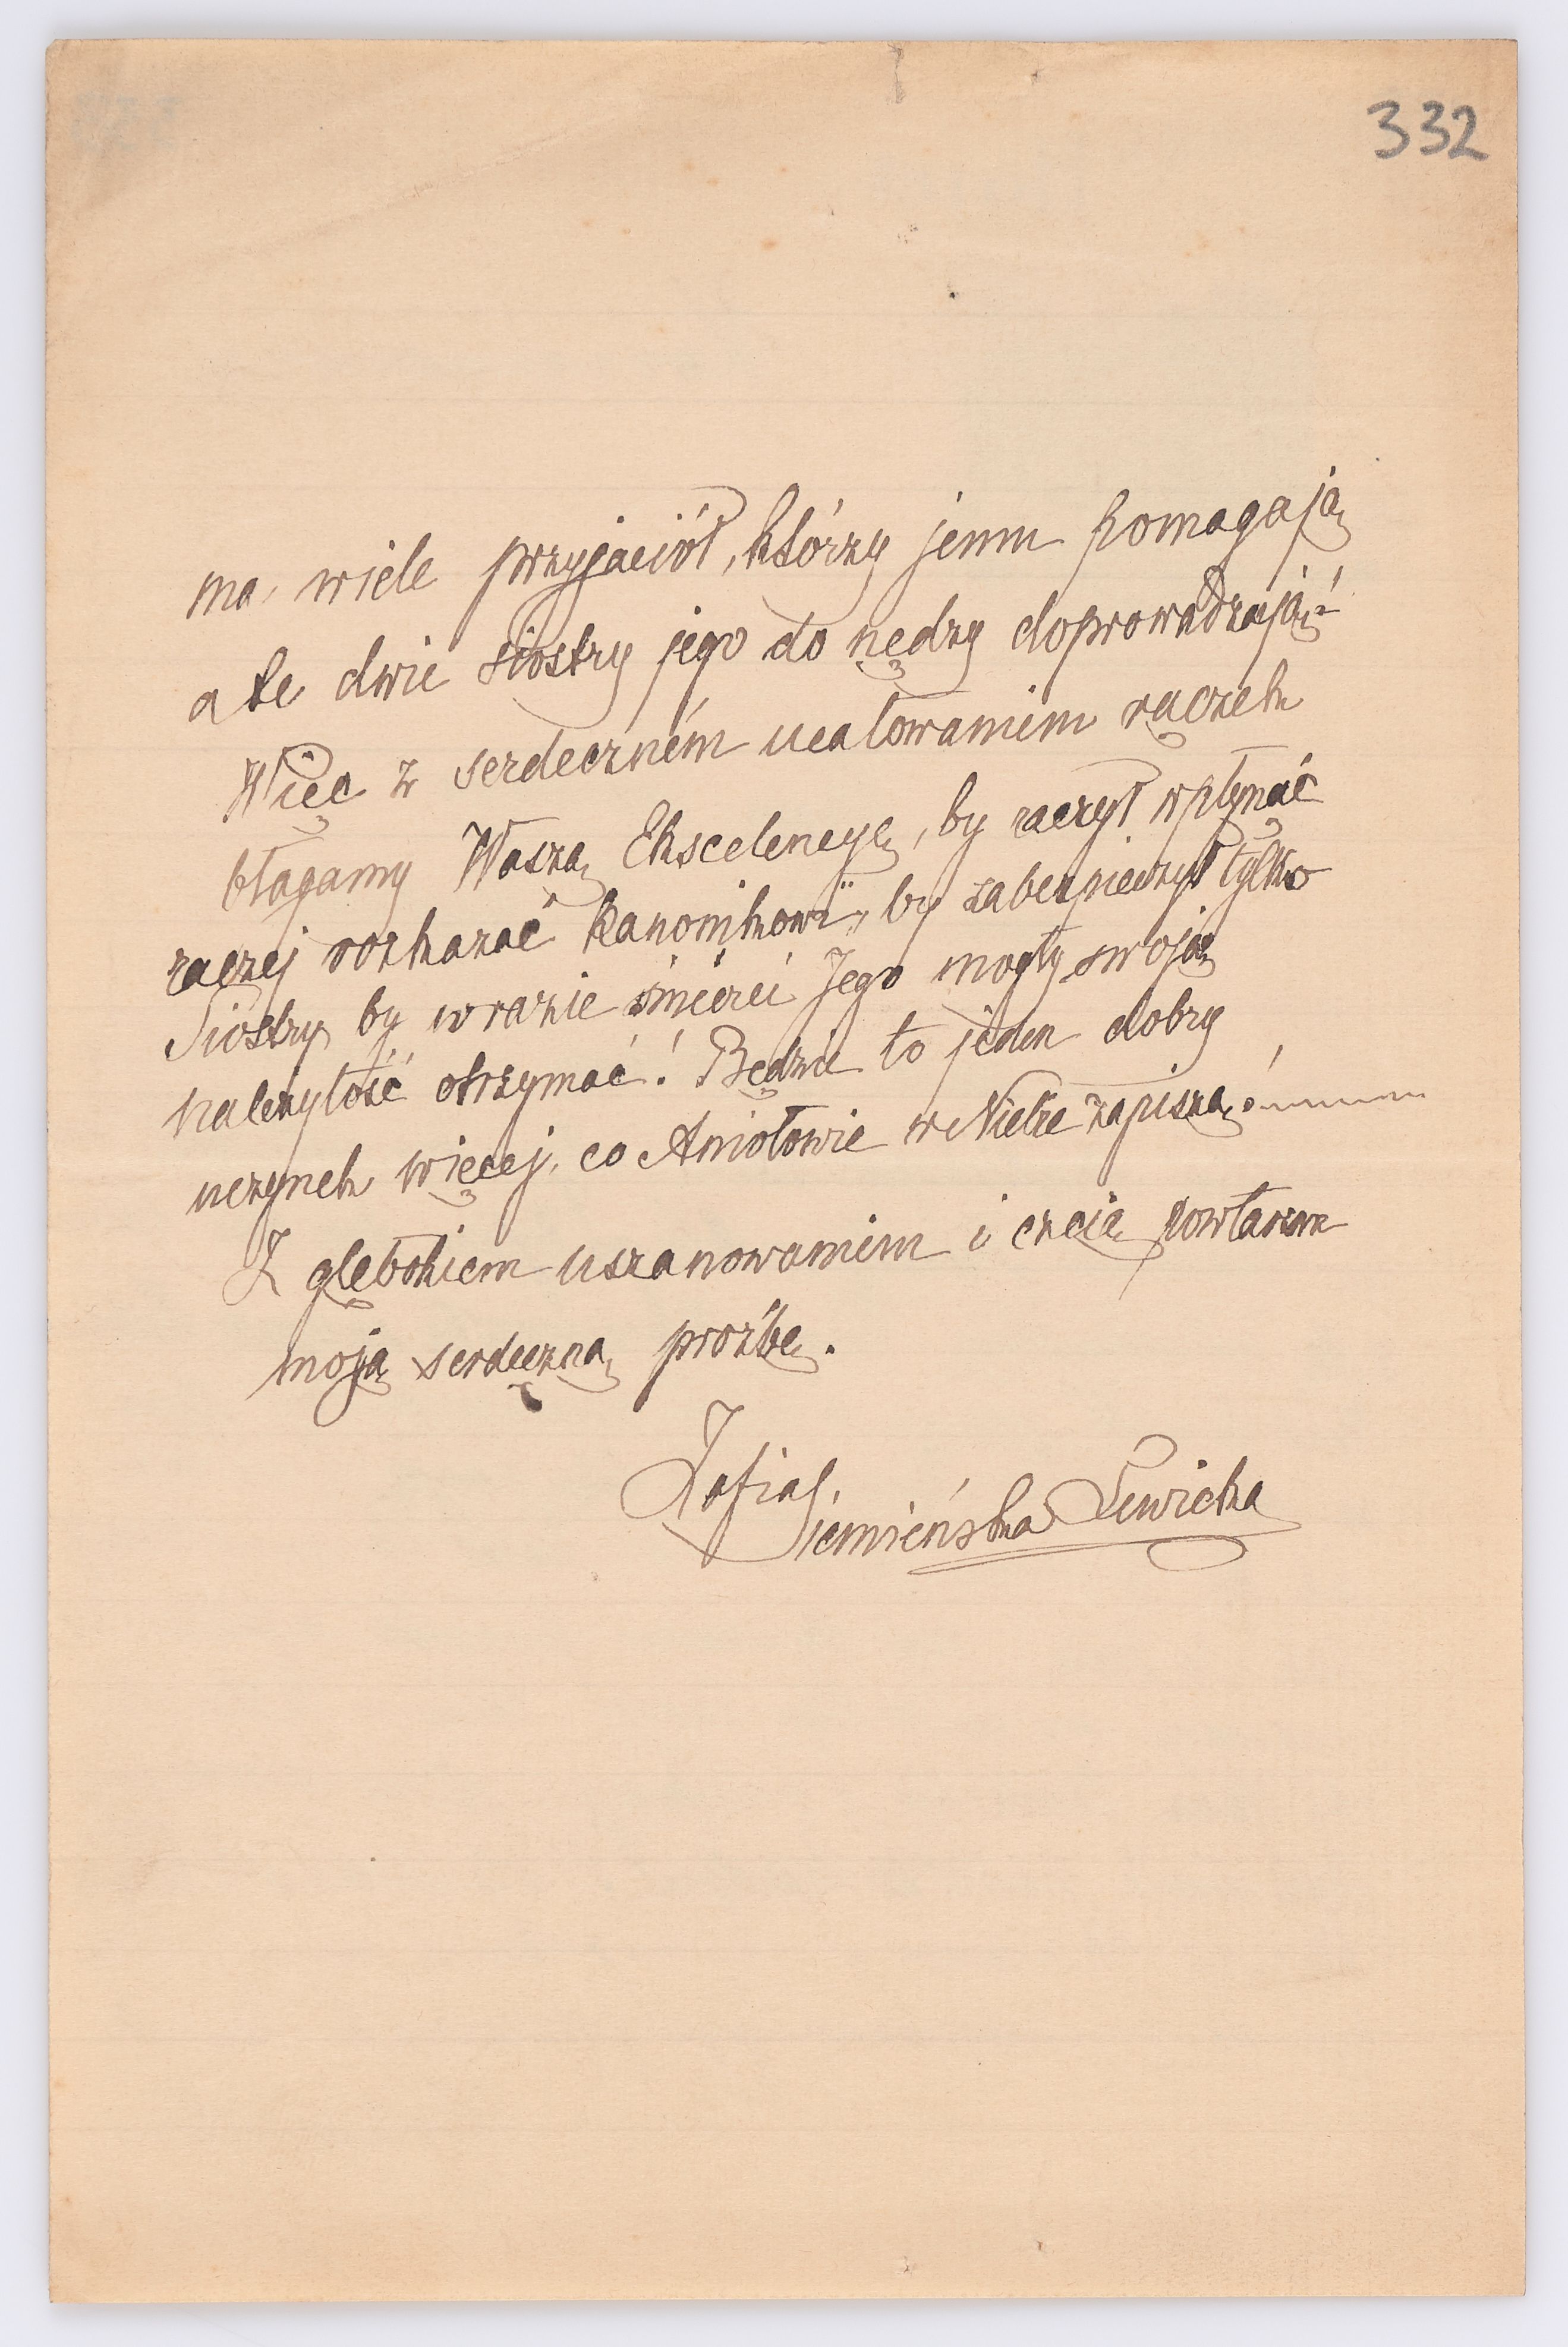 332
ma, wiele przyjaciół, którzy jemu pomagają
a te dwie siostry jego do nędzy doprowadzają!
Więc z serdeczném ucałowaniem rączek
błagamy Waszą Ekscelencyę, by raczył wpłynąć
raczej rozkazać Kanonikowi, by zabezpieczył tylko
Siostry, by w razie śmierci Jego mogły swoją
należytość otrzymać! Będzie to jeden dobry
uczynek więcej, co Aniołowie w Niebie zapiszą!
Z głębokiem uszanowaniem i czcią powtarzam
moją serdeczną prozbę.
Zofia
Siemieńska Lewicka